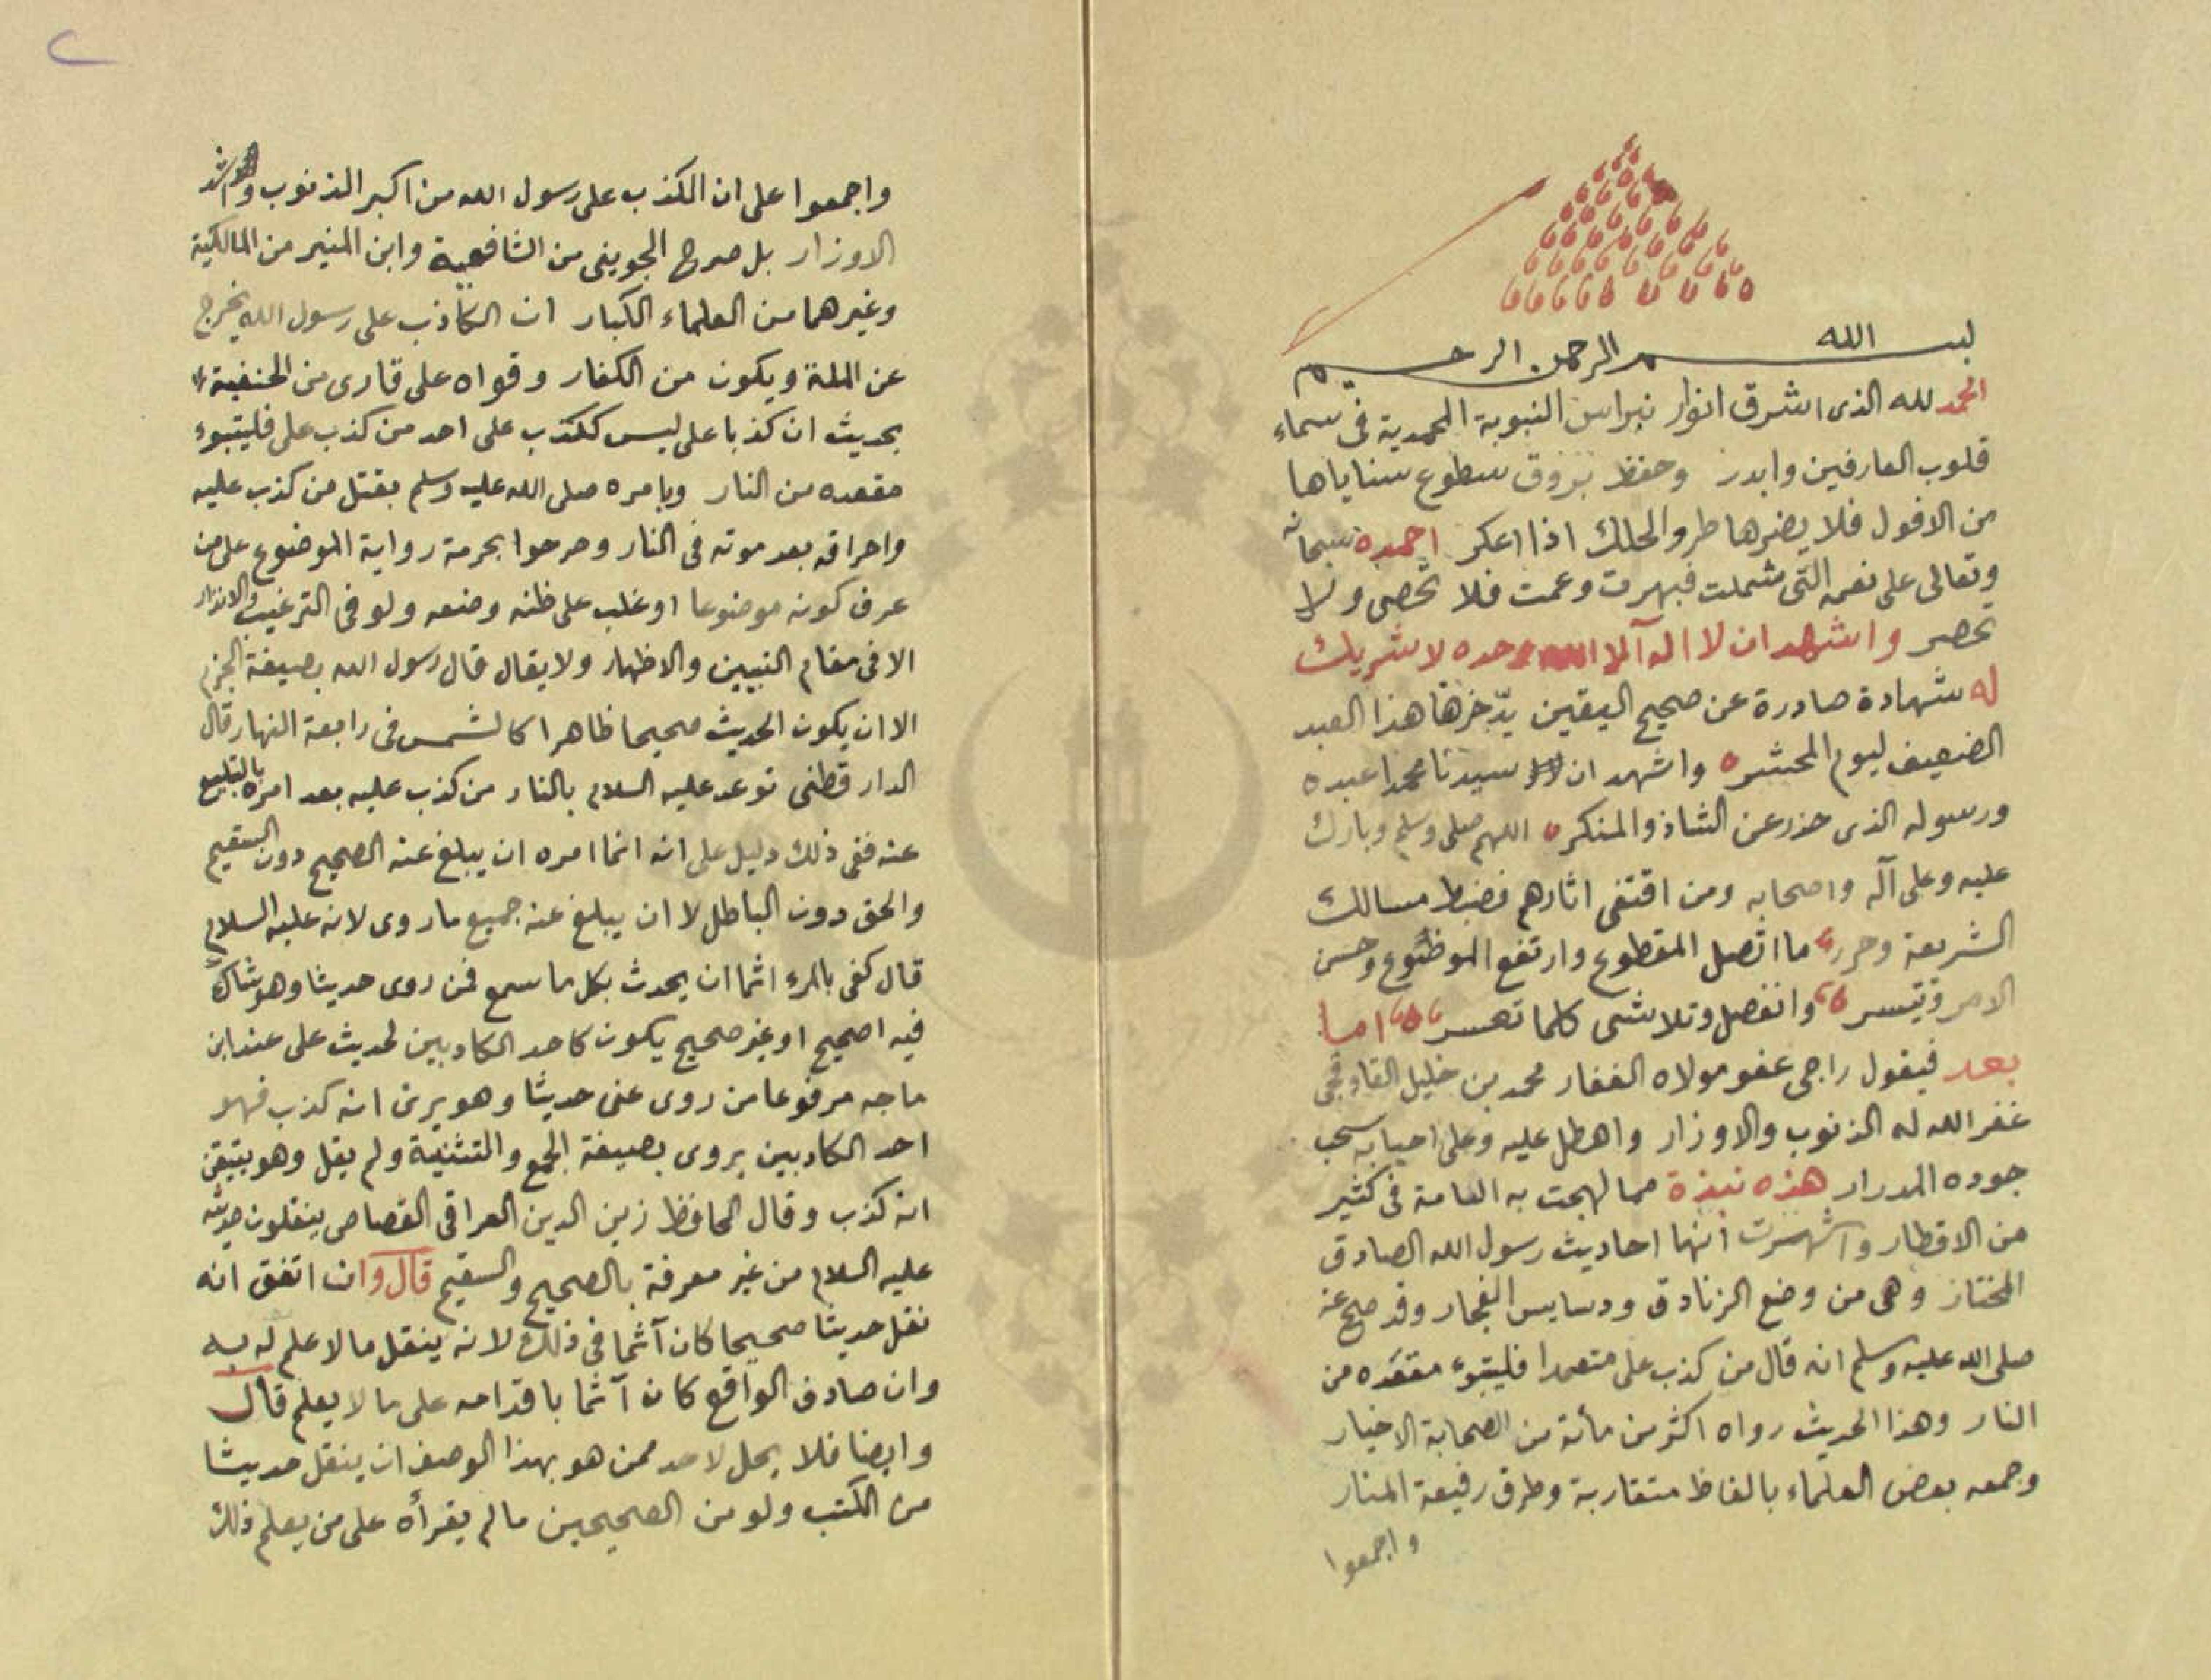 بسم الله الرحمن الرحيم
الحمد لله الذى اشرق انوار نبراس النبوية المحمدية فى سماء
قلوب العارفين وابدر وحفظ بزوق سطوع سناياها
من الافول فلا يضرها طر والحلك اذا اعكر احمده سبحانه
وتعالى على نعمه التى شملت فبهرت وعمت فلا تحصى ولا
تحصر واشهد ان لا اله الا الله وحده لا شريك
له شهادة صادرة عن صحيح اليقين يدّخرها هذا العبد
الضعيف ليوم المحشر واشهد ان سيدنا محمدا عبده
ورسوله الذى حذر عن الشاذ والمنكر اللهم صلى وسلم وبارك
عليه وعلى آله واصحابه ومن اقتفى اثارهم فضبط مسالك
الشريعة وحرر ما اتصل المقطوع وارتفع الموضوع وحسن
الامر وتيسر وانفصل وتلاشى كلما تعسر اما
بعد فيقول راجى عفو مولاه الغفار محمد بن خليل القاوقجى
غفر الله له الذنوب والاوزار واهطل عليه وعلى احبابه سحب
جوده المدرار هذه نبذة مما لهجت به العامة فى كثير
من الاقطار واشتهرت انها احاديث رسول الله الصادق
المختار وهى من وضع الزنادق ودسايس الفجار وقد صح عنه
صلى الله عليه وسلم انه قال من كذب على متعمدا فليتبوء مقعده من
النار وهذا الحديث رواه اكثر من مأئة من الصحابة الاخيار
وجمعه بعض العلماء بالفاظ متقاربة وطرق رفيعة المنار
واجمعوا
واجمعوا على ان الكذب على رسول الله من اكبر الذنوب واشد
الاوزار بل صرح الجوينى من الشافعية وابن المنير من المالكية
وغيرهما من العلماء الكبار ان الكاذب على رسول الله يخرج
عن الملة ويكون من الكفار وقواه على قارى من الحنفية
بحديث ان كذبا على ليس ككذب على احد من كذب على فليتبوء
مقعده من النار وبامره صلى الله عليه وسلم بقتل من كذب عليه
واحراقه بعد موته فى النار وصرحوا بحرمة رواية الموضوع على من
عرف كونه موضوعا او غلب على ظنه وضعه ولو فى الترغيب والانذار
الا فى مقام التبيين والاظهار ولا يقال قال رسول الله بصيغة الجزم
الا ان يكون الحديث صحيحا ظاهرا كالشمس فى رابعة النهار قال
الدار قطنى توعد عليه السلام بالنار من كذب عليه بعد امره بالتبليغ
عنه ففى ذلك دليل على انه انما امره ان يبلغ عنه الصحيح دون السقيم
والحق دون الباطل لا ان يبلغ عنه جميع ما روى لانه عليه السلام
قال كفى بالمرء اثما ان يحدث بكل ما سمع فمن روى حديثا وهو شاك
فيه اصحيح او غير صحيح يكون كاحد الكاذبين لحديث على عند ابن
ماجه مرفوعا من روى عنى حديثا وهو يرى انه كذب فهو
احد الكاذبين يروى بصيغة الجمع والتثنية ولم يقل وهو يتيقن
انه كذب وقال الحافظ زين الدين العراقى القصاص ينقلون حديثه
عليه السلام من غير معرفة بالصحيح والسقيم قال وان اتفق انه
نقل حديثا صحيحا كان آثما فى ذلك لانه ينقل ما لا علم له به
وان صادف الواقع كان آثما باقدامه على ما لا يعلم قال
وايضا فلا يحل لاحد ممن هو بهذا الوصف ان ينقل حديثا
من الكتب ولو من الصحيحين ما لم يقرأه على من يعلم ذلك